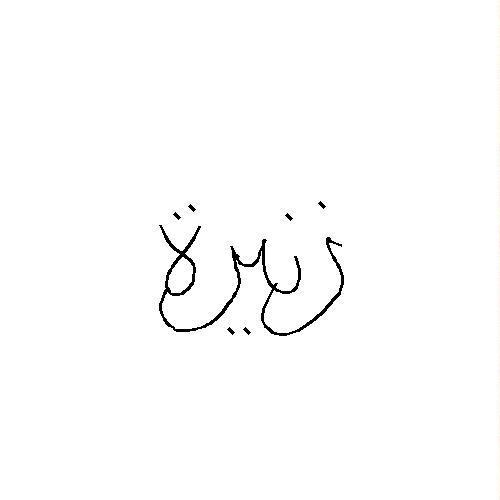 زنيرة